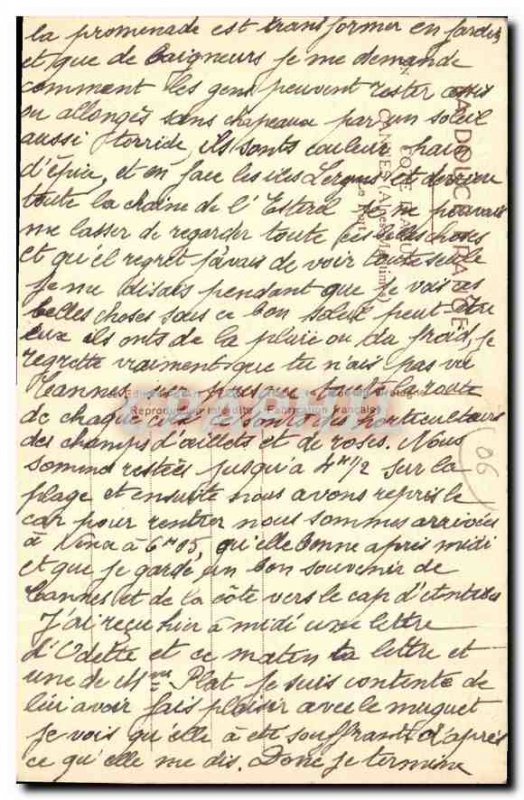 la promenade est transformer en jardin
et que de baigneurs je me demande
comment les gens peuvent rester assis
ou allongés sans chapeaux par un soleil
aussi torride, ils sonts couleur pain
d'épice, et en face les iles Lerins et derriere
toute la chaine de l'Esterel je ne pouvais
me lasser de regarder toute ces belles choses
et qu'el regret j'avais de voir toute seule
je me disais pendant que je vois ces
belles choses sous ce bon soleil peut-être
eux ils onts de la pluie ou du froid, je
regrette vraiment que tu n'ais pas vu
Cannes, sur presque toute la route
de chaque côté ce sonts des horticulteurs
des champs d'œillets et de roses. Nous
sommes restées jusqu'à 4H1/2 sur la
plage et ensuite nous avons repris le
car pour rentrer nous sommes arrivées
à à 6H05, qu'elle bonne après midi
et que je garde un bon souvenir de
Cannes et de la côte vers le cap d'Antibes
J'ai reçu hier à midi une lettre
d'Odette et ce matin ta lettre et
une de Mme Plat je suis contente de
lui avoir fais plaisir avec le muguet
je vois qu'elle à été souffrante d'après
ce qu'elle me dis. Donc je termine
LA DOUCE FRANCE
COTE D'AZUR
CANNES (Alpes-Maritimes)
Reproduction interdite Fabrication française
(06)